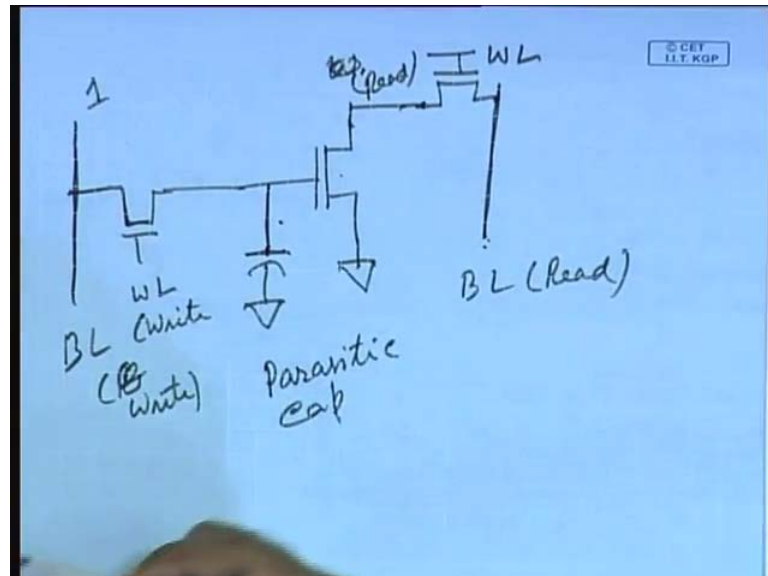 © CET
I.I.T. KGP
WL
(Read)
1
WL
(Write
BL
(Write)
Parasitic
Cap
BL (Read)